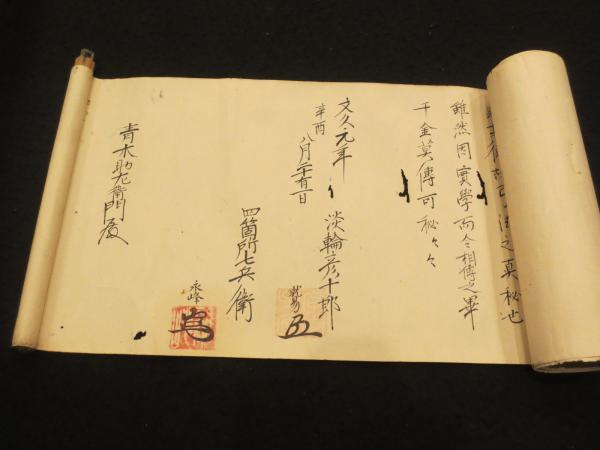 之真秘也
雖然因實學而今相傳之畢
千金莫傳可秘々々
文久元年
辛酉
八月二十有一日
淡輪彦十郎
四箇所七兵衛
永峰
青木助左衛門殿